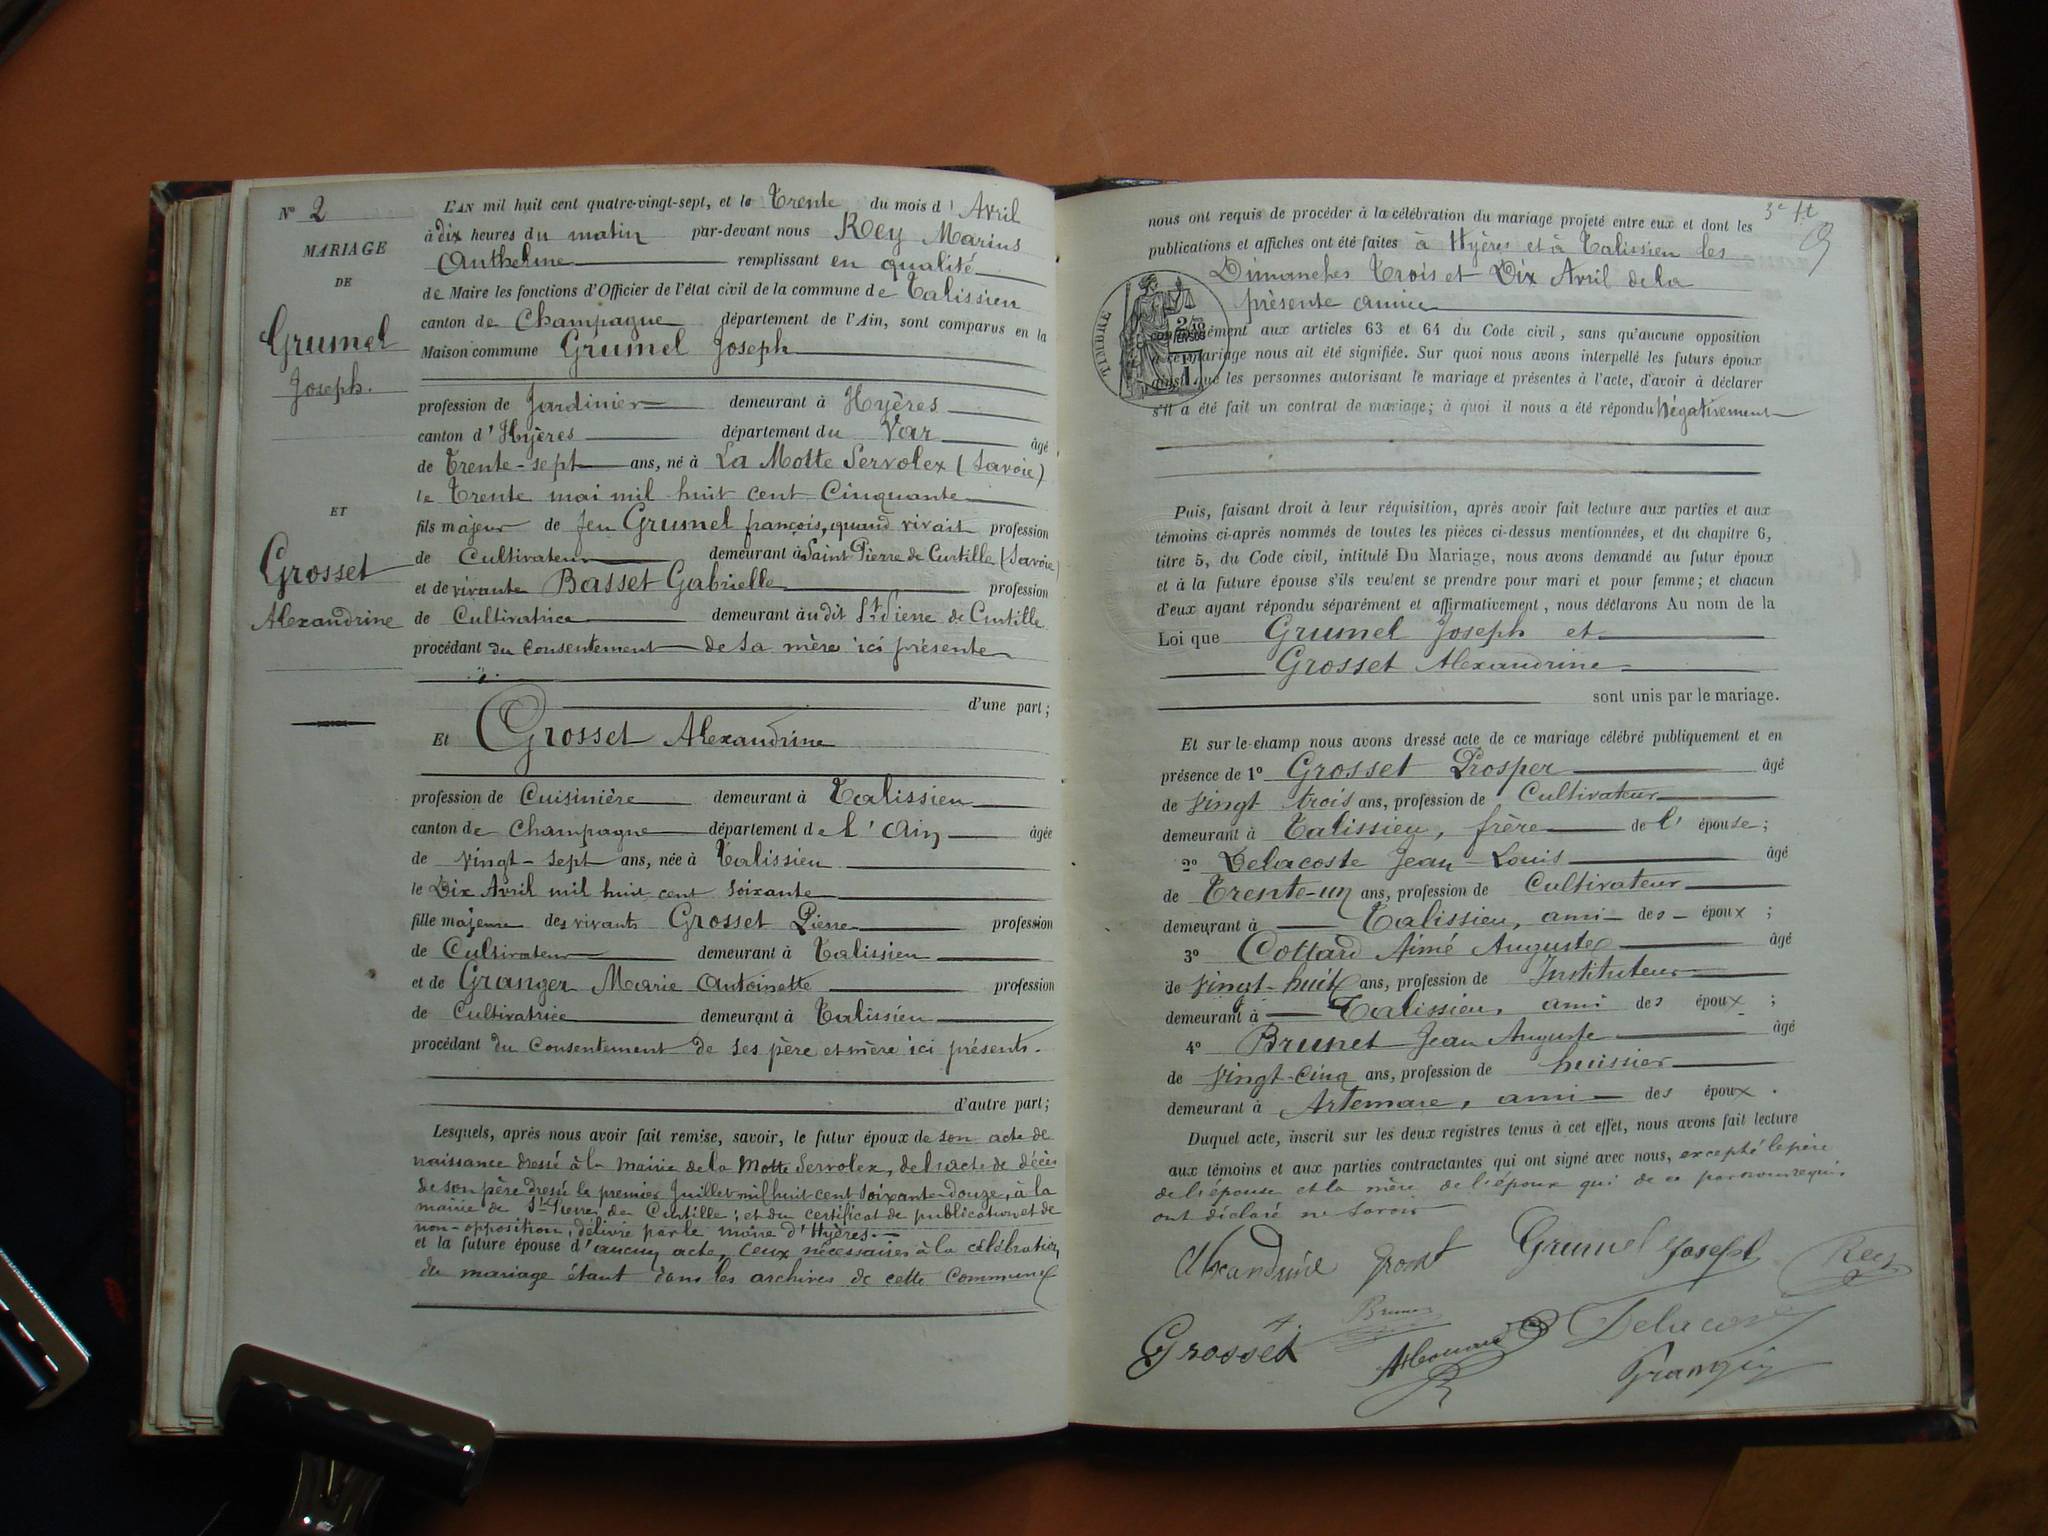 N° 2
MARIAGE
DE
Grumel
Joseph.
ET
Grosset
Alexandrine
L'AN mil huit cent quatre-vingt-sept, et le Trente du mois d'Avril
à dix heures du matin par-devant nous Rey Marius
Anthelme remplissant en qualité
de Maire les fonctions d'Officier de l'état civil de la commune de Talissieu
canton de Champagne département de l'Ain, sont comparus en la
Maison commune Grumel Joseph
profession de Jardinier demeurant à Hyères
canton d'Hyères département du Var âgé
de Trente-sept ans, né à La Motte Servolex (Savoie)
le Trente mai mil huit cent Cinquante
fils majeur de feu Grumel françois, quand vivait profession
de Cultivateur demeurant à Saint Pierre de Curtille (Savoie)
et de vivante Basset Gabrielle profession
de Cultivatrice demeurant audit St Pierre de Curtille
procédant du Consentement de sa mère ici présente
d'une part;
Et Grosset Alexandrine
profession de Cuisinière demeurant à Talissieu
canton de Champagne département de l'Ain âgée
de vingt-sept ans, née à Talissieu
le Dix Avril mil huit cent soixante
fille majeure des vivants Grosset Pierre profession
de Cultivateur demeurant à Talissieu
et de Granger Marie Antoinette profession
de Cultivatrice demeurant à Talissieu
procédant du Consentement de ses père et mère ici présents.
d'autre part;
Lesquels, après nous avoir fait remise, savoir, le futur époux de son acte de
naissance dressé à la mairie de la Motte Servolex, de l'acte de décès
de son père dressé le premier Juillet mil huit cent soixante-douze, à la
mairie de St Pierre de Curtille; et du certificat de publication et de
non-opposition, délivré par le maire d'Hyères.
et la future épouse d'aucun acte, ceux nécessaires à la célébration
du mariage étant dans les archives de cette Commune
3e ft
nous ont requis de procéder à la célébration du mariage projeté entre eux et dont les
publications et affiches ont été faites à Hyères et à Talissieu les
Dimanches Trois et Dix Avril de la
présente année
TIMBRE
conformément aux articles 63 et 64 du Code civil, sans qu'aucune opposition
à ce mariage nous ait été signifiée. Sur quoi nous avons interpellé les futurs époux
ainsi que les personnes autorisant le mariage et présentes à l'acte, d'avoir à déclarer
s'il a été fait un contrat de mariage; à quoi il nous a été répondu Négativement
Puis, faisant droit à leur réquisition, après avoir fait lecture aux parties et aux
témoins ci-après nommés de toutes les pièces ci-dessus mentionnées, et du chapitre 6,
titre 5, du Code civil, intitulé Du Mariage, nous avons demandé au futur époux
et à la future épouse s'ils veulent se prendre pour mari et pour femme; et chacun
d'eux ayant répondu séparément et affirmativement, nous déclarons Au nom de la
Loi que Grumel Joseph et
Grosset Alexandrine
sont unis par le mariage.
Et sur-le-champ nous avons dressé acte de ce mariage célébré publiquement et en
présence de 1° Grosset Prosper âgé
de vingt trois ans, profession de Cultivateur
demeurant à Talissieu, frère de l'épouse;
2° Delacoste Jean-Louis âgé
de Trente-un ans, profession de Cultivateur
demeurant à Talissieu, ami des époux;
3° Cottard Aimé Auguste âgé
de vingt-huit ans, profession de Instituteur
demeurant à Talissieu, ami des époux;
4° Brunet Jean Auguste âgé
de vingt-cinq ans, profession de huissier
demeurant à Artemare, ami des époux.
Duquel acte, inscrit sur les deux registres tenus à cet effet, nous avons fait lecture
aux témoins et aux parties contractantes qui ont signé avec nous, excepté le père
de l'épouse et la mère de l'époux qui de ce par nous requis
ont déclaré ne savoir
Alexandrine Groset Grumel Joseph Rey
Brunet
Grosset Delacoste